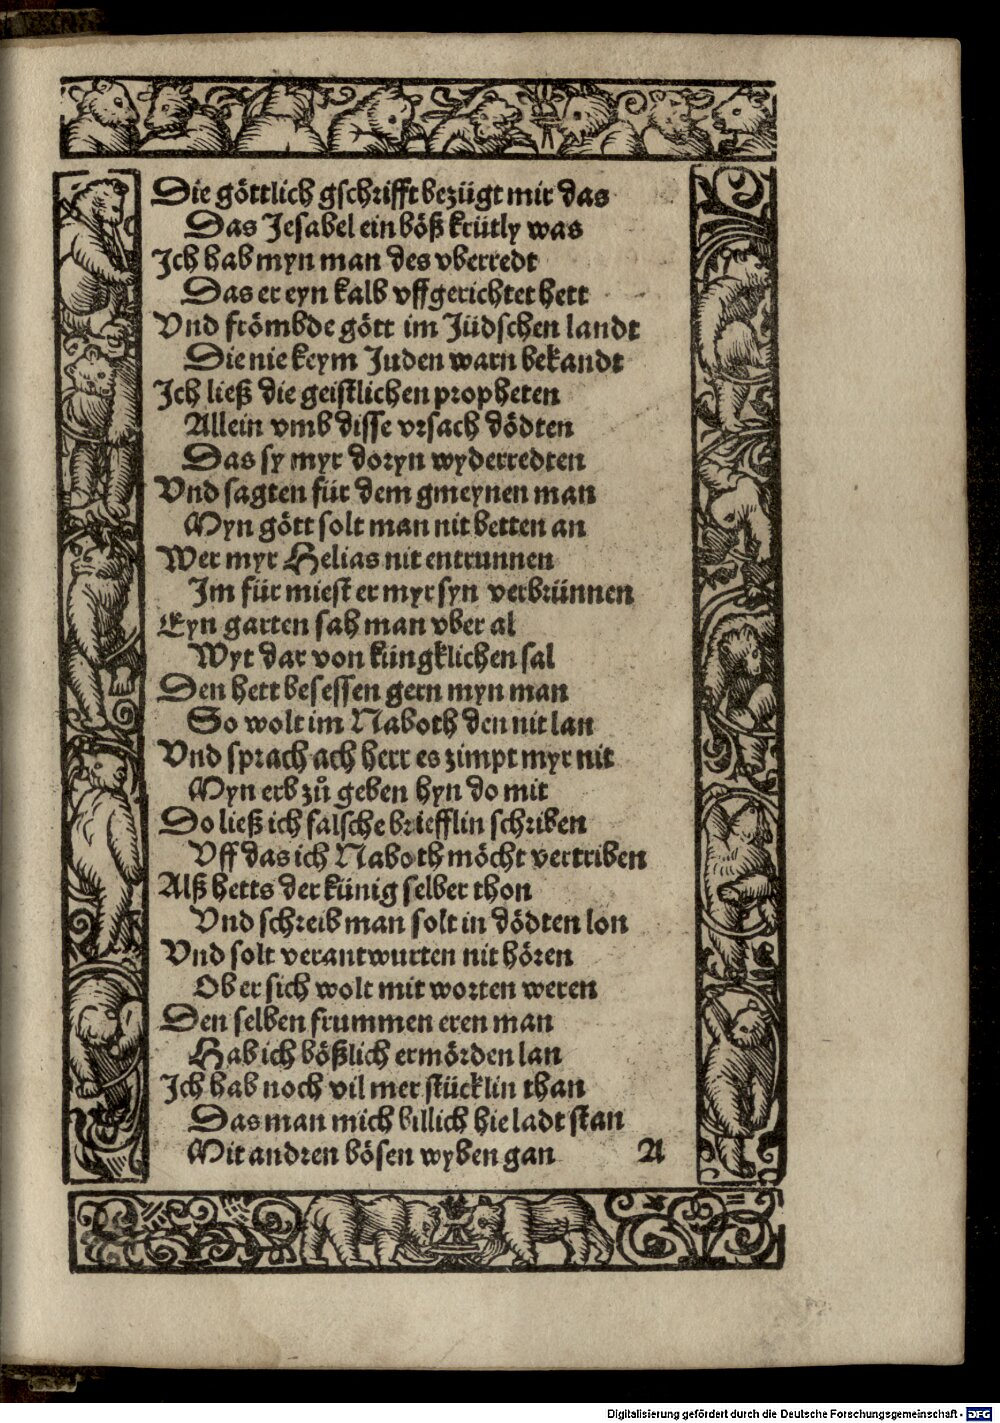 Die göttlich gschrifft bezügt mir das
Das Jesabel ein böß krütly was
Ich hab myn man des vberredt
Das er eyn kalb vffgerichtet hett
Vnd frömbde gött im Jüdschen landt
Die nie keym Juden warn bekandt
Ich ließ die geistlichen propheten
Allein vmb disse vrsach dödten
Das sy myr doryn wyderredten
Vnd sagten für dem gmeynen man
Myn gött solt man nit betten an
Wer myr Helias nit entrunnen
Im für miest er myr syn verbrünnen
Eyn garten sah man vber al
Wyt dar von küngklichen sal
Den hett besessen gern myn man
So wolt im Naboth den nit lan
Vnd sprach ach herr es zimpt myr nit
Myn erb zů geben hyn do mit
Do ließ ich falsche briefflin schriben
Vff das ich Naboth möcht vertriben
Alß hetts der künig selber thon
Vnd schreib man solt in dödten lon
Vnd solt verantwurten nit hören
Ob er sich wolt mit worten weren
Den selben frummen eren man
Hab ich bößlich ermörden lan
Ich hab noch vil mer stücklin than
Das man mich billich hie ladt stan
Mit andren bösen wyben gan A
Digitalisierung gefördert durch die Deutsche Forschungsgemeinschaft - DFG